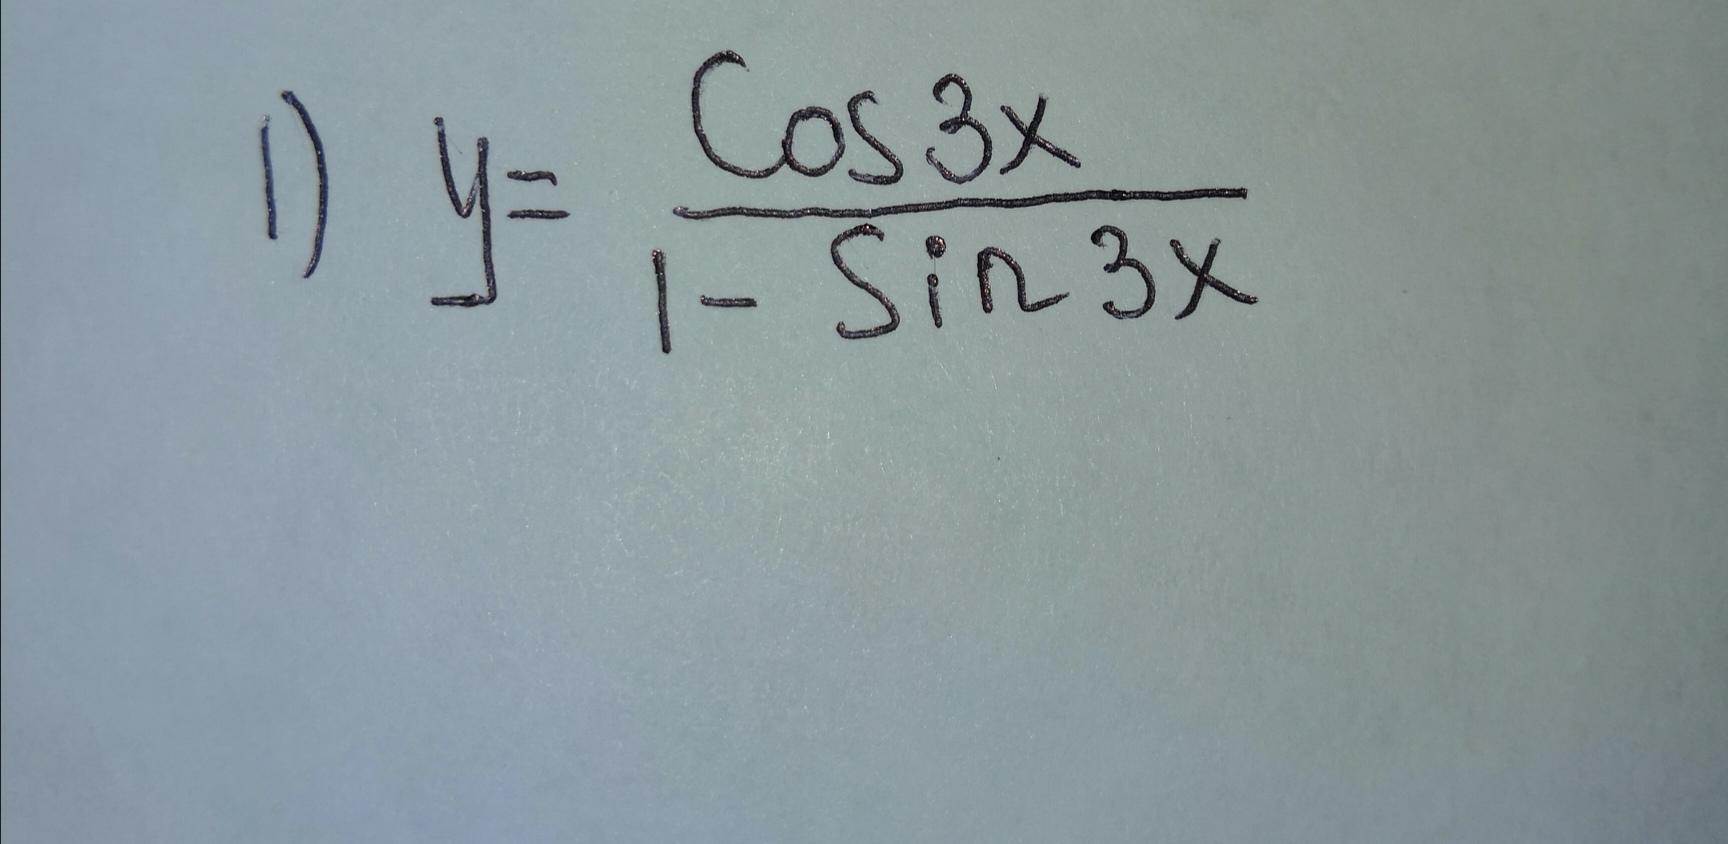 1) y = Cos 3x / 1 - Sin 3x